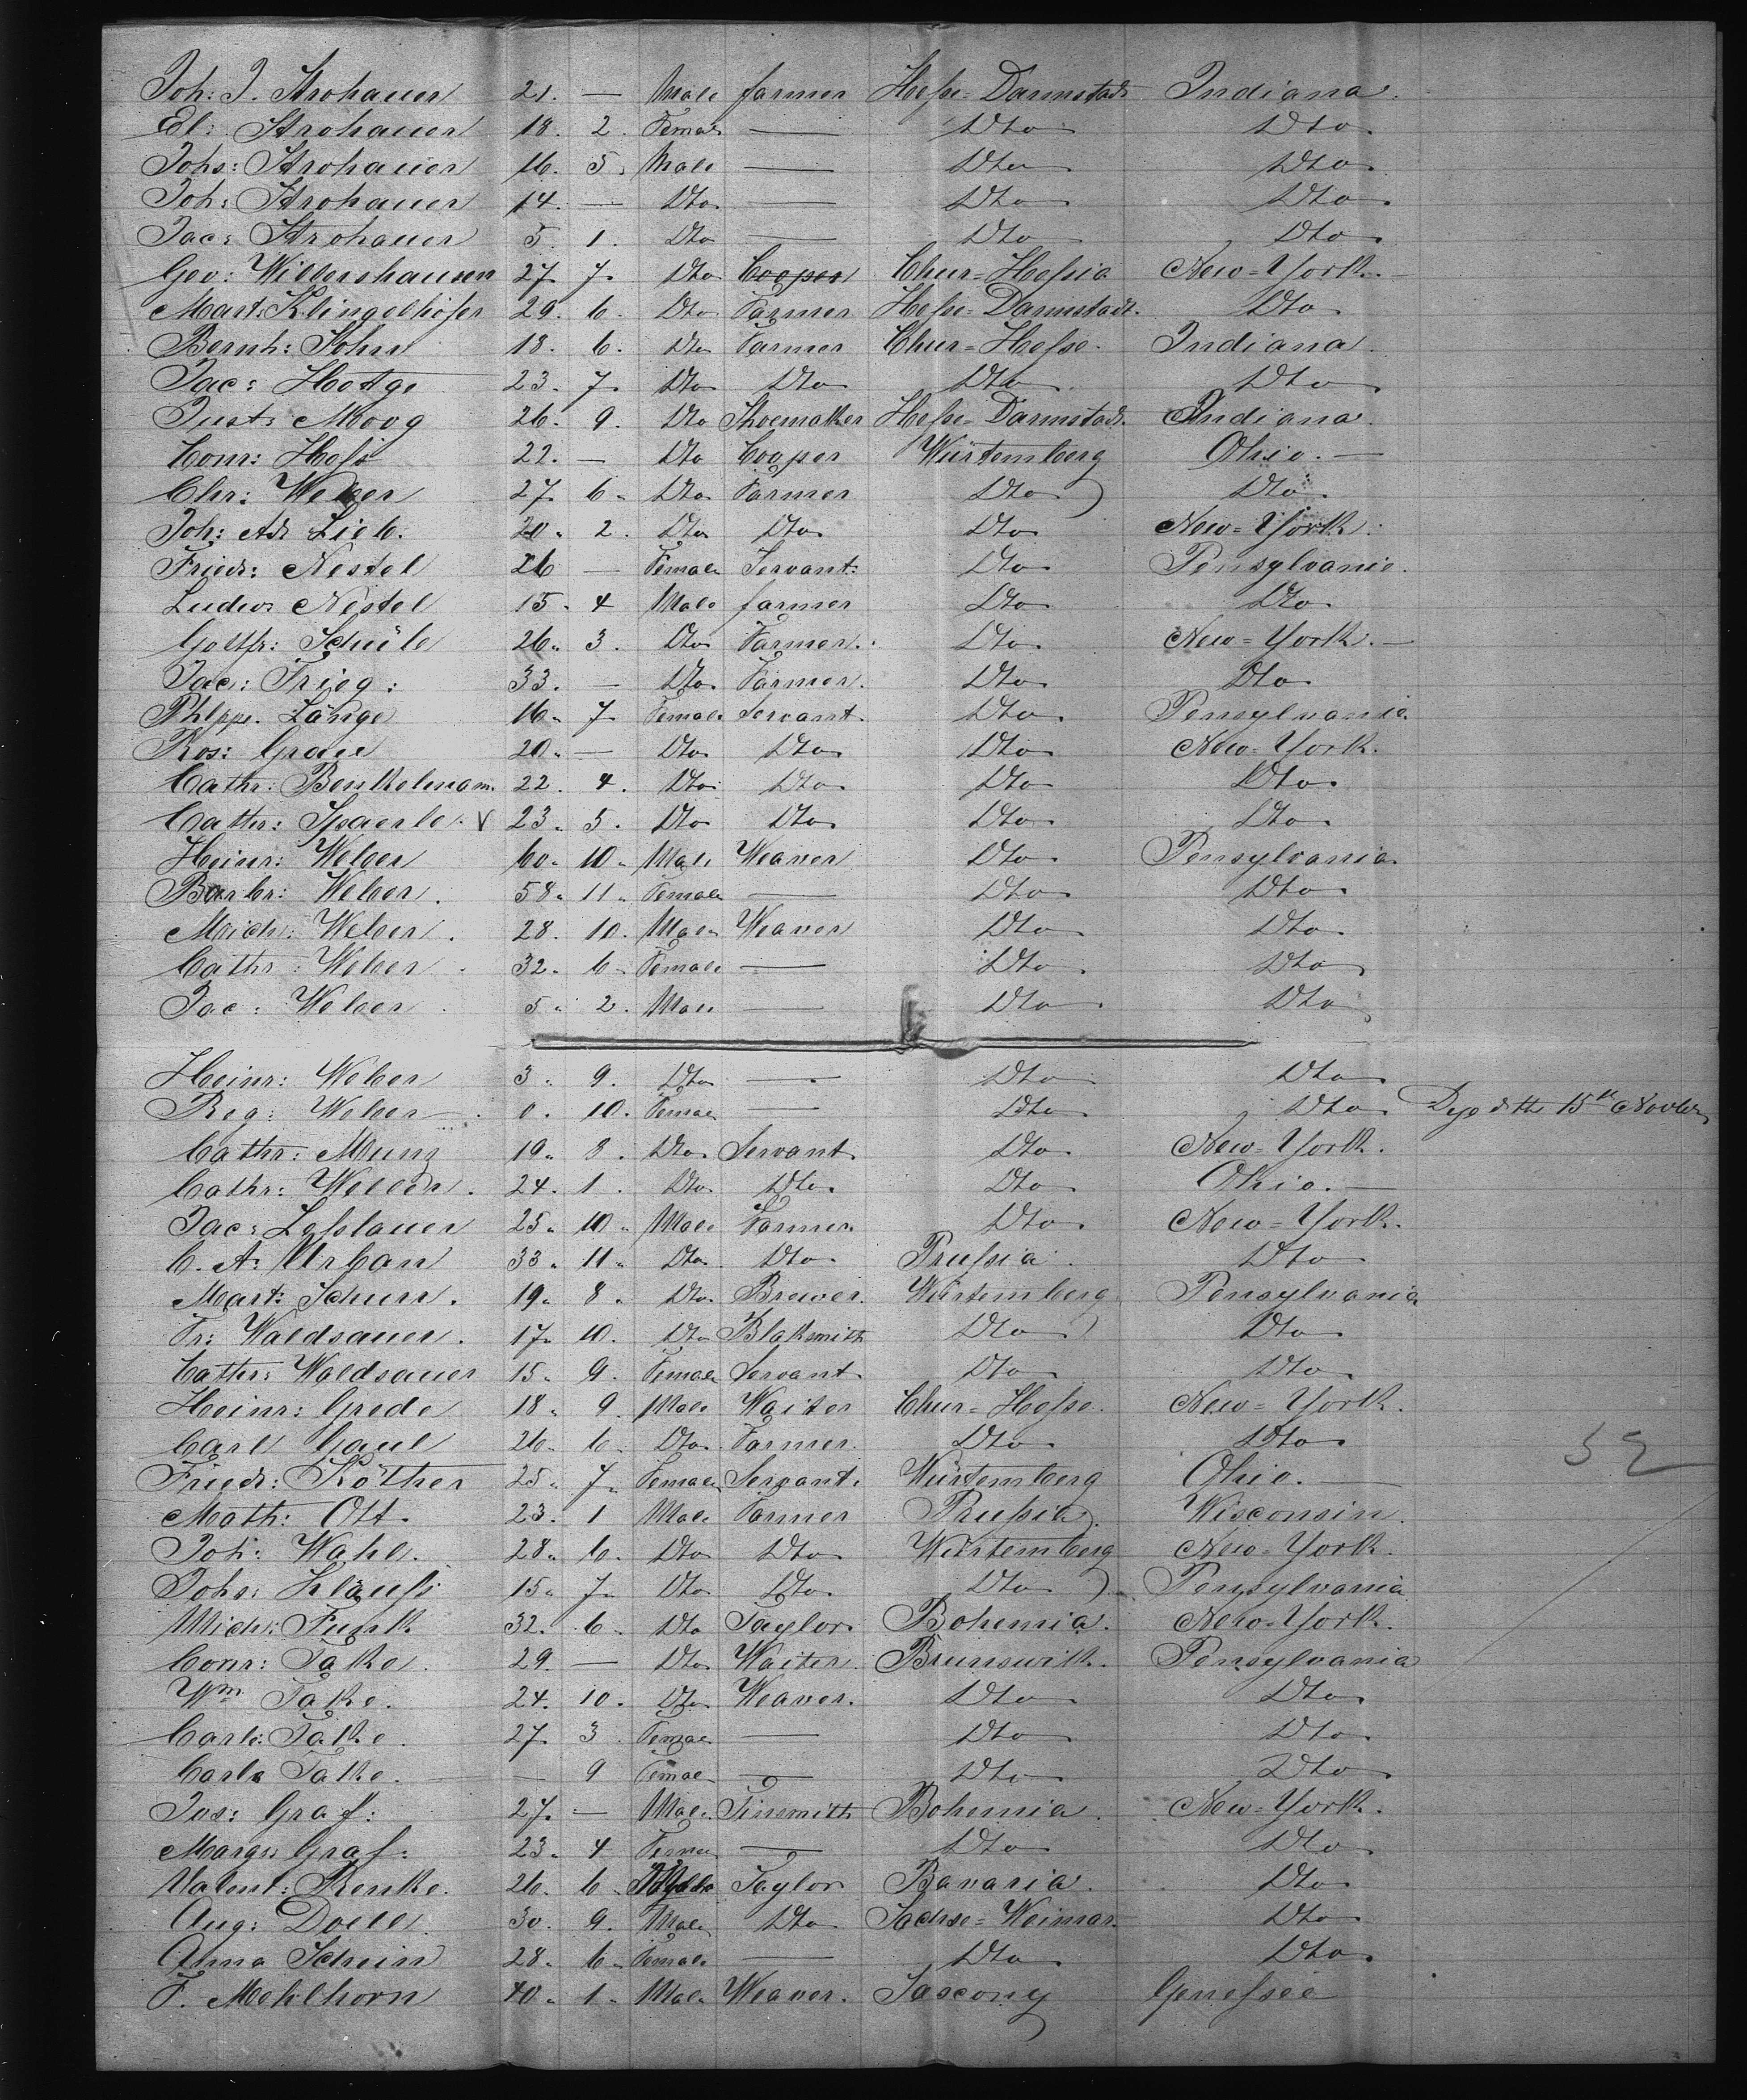 Joh: J. Strohauer 21. — Male farmer Hesse=Darmstadt Indiana.
El: Strohauer 18. 2. Femal — Dto Dto.
Johs: Strohauer 16. 5. Male — Dto Dto.
Joh: Strohauer 14. — Dto — Dto Dto.
Jac: Strohauer 5. 1. Dto — Dto Dto
Geo: Willershausen 27. 7. Dto Cooper Chur=Hessia New=York. —
Mart: Klingelhöfer 29. 6. Dto Farmer Hesse=Darmstadt. Dto
Bernh: John 18. 6. Dto Farmer Chur=Hesse. Indiana.
Jac: Hettge 23. 7. Dto Dto Dto Dto
Just: Moog 26. 9. Dto Shoemakker Hesse=Darmstadt. Indiana.
Conr: Hess 22. — Dto Cooper Würtemberg Ohio. —
Chr: Weber 27. 6. Dto Farmer Dto Dto.
Joh: Ad: Lieb. 20. 2. Dto Dto Dto New=York.
Friedr: Nestel 26 — Female Servant: Dto Pensylvanie.
Ludw: Nestel 15. 4 Male farmer Dto Dto.
Gottfr: Schüle 26. 3. Dto Farmer. Dto New=York. —
Jac: Trieg: 33. — Dto Farmer. Dto Dto
Phlppe. Länge 16. 7 Female Servant. Dto Pensylvanie.
Ros: Grau 20. — Dto Dto Dto New=York.
Cathr: Benkelmann. 22. 4. Dto Dto Dto Dto
Cathr: Spaerle. V 23. 5. Dto Dto Dto Dto
Heinr: Weber 60. 10. Male Weaver Dto Pensylvania
Barbr: Weber. 58. 11. Female — Dto Dto
Mich: Weber. 28. 10. Male Weaver Dto Dto
Cathr: Weber 32. 6. Female — Dto Dto
Jac: Weber 5. 2. Male — Dto Dto
Heinr: Weber 3. 9. Dto — Dto Dto
Reg: Weber 0. 10. Femal — Dto Dto Dyed the 15th Novbr
Cathr: Munz 19. 8. Dto Servant. Dto New=York.
Cathr: Weller. 24. 1. Dto Dto. Dto Ohio. —
Jac: Lesslauer 25. 10. Male Farmer Dto New=York.
C. A. Urban 33. 11. Dto Dto Prussia. Dto
Mart: Schurr. 19. 8. Dto Brewer. Würtemberg Pensylvania
Fr: Waldsauer. 17. 10. Dto Blaksmith Dto Dto
Cathr: Waldsauer 15. 9. Female Servant. Dto Dto
Heinr: Grede 18. 9. Male Waiter Chur=Hesse. New=York.
Carl Gaul 26. 6. Dto Farmer. Dto Dto 52
Friedr: Köther 25. 7. Female Servant. Würtemberg Ohio. —
Math: Ott. 23. 1 Male Farmer Prussia. Wisconsin.
Joh: Wahl. 28. 6. Dto Dto Würtemberg New=York.
Johs: Klauss 15. 7. Dto Dto Dto Pensylvania
Mich: Funk 32. 6. Dto Taylor. Bohemia. New=York.
Conr: Take. 29. — Dto Waiter. Brunswik. Pensylvania
Wm Take. 24. 10. Dto Weaver. Dto Dto
Carl: Take. 27. 3 Femal — Dto Dto
Carla Take. — 9 Femal — Dto Dto
Jos: Graf: 27. — Male Tinsmith Bohemia. New=York.
Margr: Graf: 23. 4 Femal — Dto Dto
Valent: Renke. 26. 6. Taylor Bavaria. Dto
Aug: Doell. 30. 9. Male Dto Sachse=Weimar Dto
Anna Schein 28. 6. Female — Dto Dto
F. Mehlhorn 40. 1. Male Weaver. Sascony Genessee